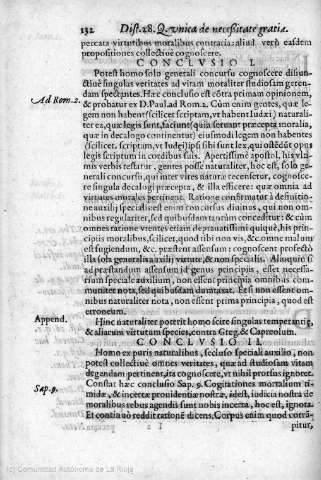 132 Dist. 28. Q. vnica de necessitate gratiæ.
peccata virtutibus moralibus contraria: aliud verò easdem
propositiones collectiuè cognoscere.
CONCLVSIO I.
Potest homo solo generali concursu cognoscere disiun-
ctiuè singulas veritates ad vitam moraliter studiosam geren-
dam spectantes. Hæc conclusio est cõtra primam opinionem,
Ad Rom. 2.
& probatur ex D. Paul. ad Rom. 2. Cùm enim gentes, quæ le-
gem non habent (scilicet scriptam, vt habent Iudæi) naturali-
ter ea, quæ legis sunt, faciunt (quia seruant præcepta moralia,
quæ in decalogo continentur) eiusmodi legem non habentes
(scilicet, scriptam, vt Iudæi) ipsi sibi sunt lex, qui ostendũt opus
legis scriptum in cordibus suis. Apertissimè apostol. his vla-
mis verbis testatur, gentes posse naturaliter, hoc est, solo ge-
nerali concursu, qui inter vires naturæ recensetur, cognosce-
re singula decalogi præcepta, & illa efficere: quæ omnia ad
virtutes morales pertinent. Ratione confirmatur: à definitio-
ne auxilij specialis est enim concursus diuinus, qui non om-
nibus regulariter, sed quibusdam tantùm conceditur: & cùm
omnes ratione vtentes etiam deprauatissimi quique, his prin-
cipijs moralibus, scilicet, quod tibi non vis, &c. omne malum
est fugiendum, &c. præstent assensum: cognoscent profectò
illa sola generalis auxilij virtute, & non specialis. Alioquin si
ad præstandum assensum id genus principijs, esset necessa-
rium speciale auxilium, non essent principia omnibus com-
muniter nota, sed quibusdam duntaxat. Et si non essent om-
nibus naturaliter nota, non essent prima principia, quod est
erroneum.
Append.
Hinc naturaliter poterit homo scire singulas temperantię,
& aliarum virtutum species, contra Greg. & Capreolum.
CONCLVSIO II.
Homo ex puris naturalibus, secluso speciali auxilio, non
potest collectiuè omnes veritates, quæ ad studiosam vitam
degendam pertinent, ita cognoscere, vt nihil prorsus ignoret.
Sap. 9.
Constat hæc conclusio Sap. 9. Cogitationes mortalium ti-
midæ, & incertæ prouidentiæ nostræ, idest, iudicia nostra de
moralibus rebus agendis sunt nobis incerta, hoc est, ignota.
Et continuò reddit rationẽ dicens. Corpus enim quod corrũ-
pitur,
(c) Comunidad Autónoma de La Rioja